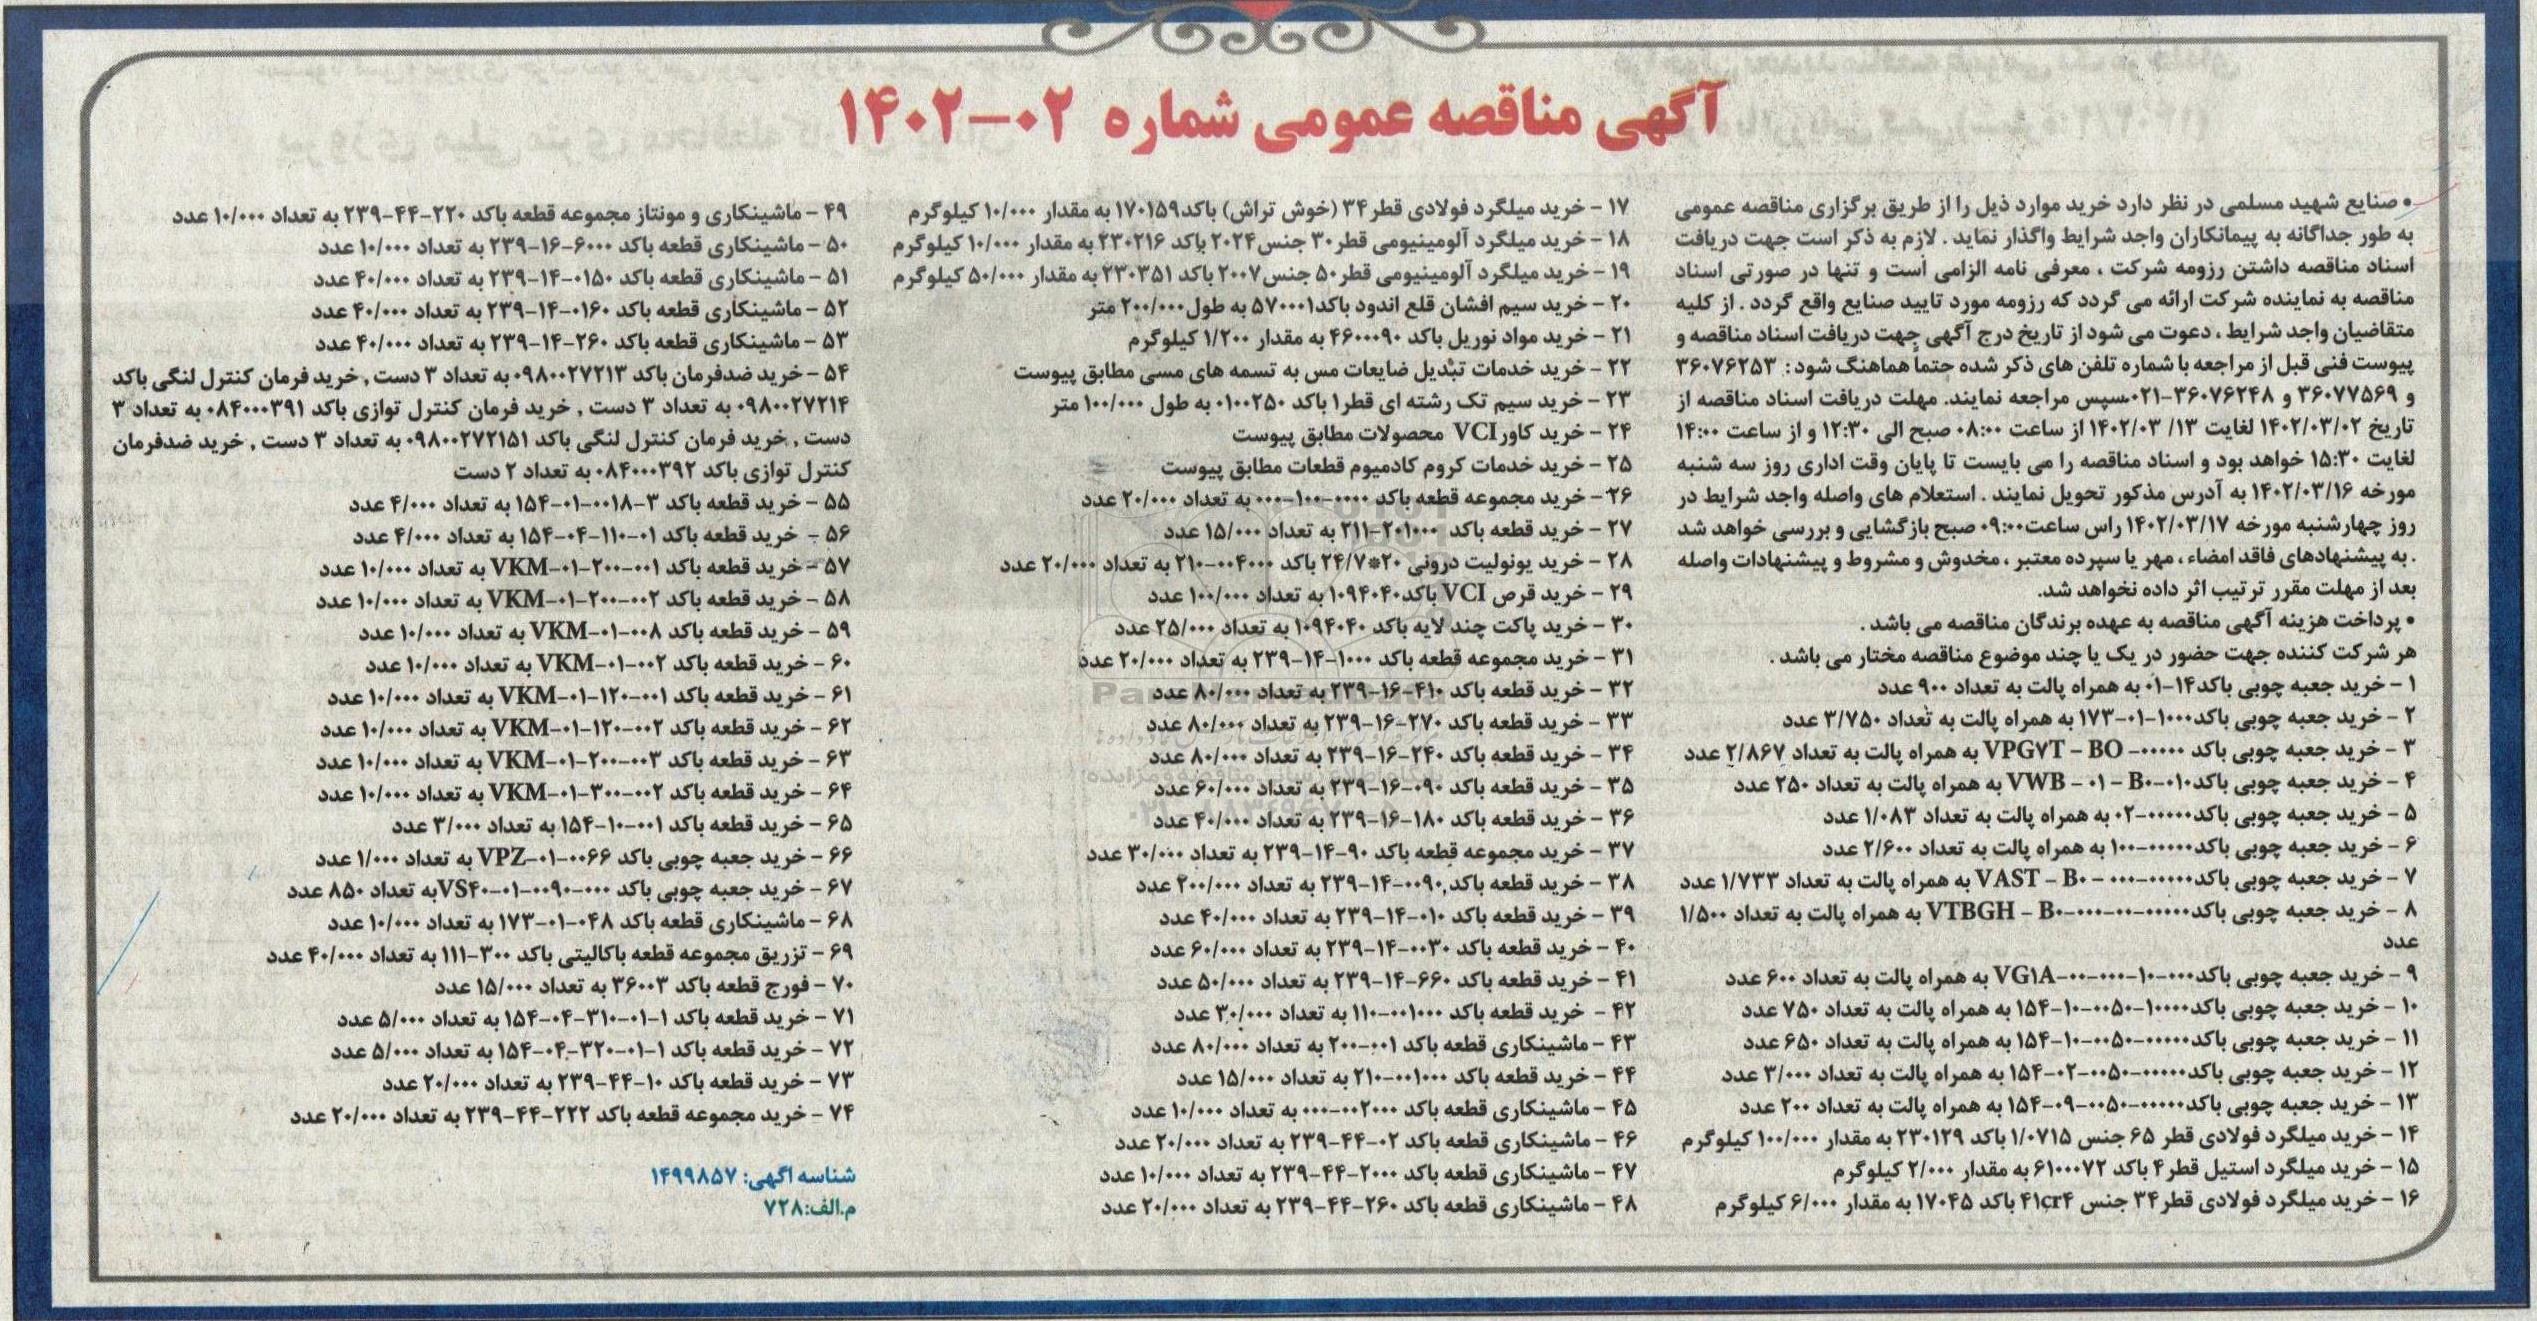 آگهی مناقصه عمومی شماره ۰۲-۱۴۰۲
• صنایع شهید مسلمی در نظر دارد خرید موارد ذیل را از طریق برگزاری مناقصه عمومی
به طور جداگانه به پیمانکاران واجد شرایط واگذار نماید . لازم به ذکر است جهت دریافت
اسناد مناقصه داشتن رزومه شرکت ، معرفی نامه الزامی است و تنها در صورتی اسناد
مناقصه به نماینده شرکت ارائه می گردد که رزومه مورد تایید صنایع واقع گردد . از کلیه
متقاضیان واجد شرایط ، دعوت می شود از تاریخ درج آگهی جهت دریافت اسناد مناقصه و
پیوست فنی قبل از مراجعه با شماره تلفن های ذکر شده حتماً هماهنگ شود : ۳۶۰۷۶۲۵۳
و ۳۶۰۷۷۵۶۹ و ۳۶۰۷۶۲۴۸-۰۲۱سپس مراجعه نمایند. مهلت دریافت اسناد مناقصه از
تاریخ ۱۴۰۲/۰۳/۰۲ لغایت ۱۳/ ۱۴۰۲/۰۳ از ساعت ۰۸:۰۰ صبح الی ۱۲:۳۰ و از ساعت ۱۴:۰۰
لغایت ۱۵:۳۰ خواهد بود و اسناد مناقصه را می بایست تا پایان وقت اداری روز سه شنبه
مورخه ۱۴۰۲/۰۳/۱۶ به آدرس مذکور تحویل نمایند . استعلام های واصله واجد شرایط در
روز چهارشنبه مورخه ۱۴۰۲/۰۳/۱۷ راس ساعت۰۹:۰۰ صبح بازگشایی و بررسی خواهد شد
. به پیشنهادهای فاقد امضاء ، مهر یا سپرده معتبر ، مخدوش و مشروط و پیشنهادات واصله
بعد از مهلت مقرر ترتیب اثر داده نخواهد شد.
• پرداخت هزینه آگهی مناقصه به عهده برندگان مناقصه می باشد .
هر شرکت کننده جهت حضور در یک یا چند موضوع مناقصه مختار می باشد .
۱ - خرید جعبه چوبی باکد۱۴-۰۱ به همراه پالت به تعداد ۹۰۰ عدد
۲ - خرید جعبه چوبی باکد۱۰۰۰-۰۱-۱۷۳ به همراه پالت به تعداد ۳/۷۵۰ عدد
۳ - خرید جعبه چوبی باکد VPG۷T - BO -۰۰۰۰۰ به همراه پالت به تعداد ۲/۸۶۷ عدد
۴ - خرید جعبه چوبی باکد۰۱۰-VWB - ۰۱ - B۰ به همراه پالت به تعداد ۲۵۰ عدد
۵ - خرید جعبه چوبی باکد۰۰۰۰۰-۰۲ به همراه پالت به تعداد ۱/۰۸۳ عدد
۶ - خرید جعبه چوبی باکد۰۰۰۰۰-۱۰۰ به همراه پالت به تعداد ۲/۶۰۰ عدد
۷ - خرید جعبه چوبی باکد۰۰۰۰۰-۰۰۰ - VAST - B۰ به همراه پالت به تعداد ۱/۷۳۳ عدد
۸ - خرید جعبه چوبی باکد۰۰۰۰۰-۰۰-۰۰۰-VTBGH - B۰ به همراه پالت به تعداد ۱/۵۰۰
عدد
۹ - خرید جعبه چوبی باکد۰۰۰-۱۰-۰۰۰-۰۰-VG۱A به همراه پالت به تعداد ۶۰۰ عدد
۱۰ - خرید جعبه چوبی باکد۱۰۰۰۰-۰۰۵۰-۱۰-۱۵۴ به همراه پالت به تعداد ۷۵۰ عدد
۱۱ - خرید جعبه چوبی باکد۰۰۰۰۰-۰۰۵۰-۱۰-۱۵۴ به همراه پالت به تعداد ۶۵۰ عدد
۱۲ - خرید جعبه چوبی باکد۰۰۰۰۰-۰۰۵۰-۰۲-۱۵۴ به همراه پالت به تعداد ۳/۰۰۰ عدد
۱۳ - خرید جعبه چوبی باکد۰۰۰۰۰-۰۰۵۰-۰۹-۱۵۴ به همراه پالت به تعداد ۲۰۰ عدد
۱۴ - خرید میلگرد فولادی قطر ۶۵ جنس ۱/۰۷۱۵ باکد ۲۳۰۱۲۹ به مقدار ۱۰۰/۰۰۰ کیلوگرم
۱۵ - خرید میلگرد استیل قطر۴ باکد ۶۱۰۰۰۷۲ به مقدار ۲/۰۰۰ کیلوگرم
۱۶ - خرید میلگرد فولادی قطر۳۴ جنس ۴۱cr۴ باکد ۱۷۰۴۵ به مقدار ۶/۰۰۰ کیلوگرم
۱۷ - خرید میلگرد فولادی قطر۳۴ (خوش تراش) باکد۱۷۰۱۵۹ به مقدار ۱۰/۰۰۰ کیلوگرم
۱۸ - خرید میلگرد آلومینیومی قطر۳۰ جنس۲۰۲۴ باکد ۲۳۰۲۱۶ به مقدار ۱۰/۰۰۰ کیلوگرم
۱۹ - خرید میلگرد آلومینیومی قطر۵۰ جنس۲۰۰۷ باکد ۲۳۰۳۵۱ به مقدار ۵۰/۰۰۰ کیلوگرم
۲۰ - خرید سیم افشان قلع اندود باکد۵۷۰۰۰۱ به طول۲۰۰/۰۰۰ متر
۲۱ - خرید مواد نوریل باکد ۴۶۰۰۰۹۰ به مقدار ۱/۲۰۰ کیلوگرم
۲۲ - خرید خدمات تبدیل ضایعات مس به تسمه های مسی مطابق پیوست
۲۳ - خرید سیم تک رشته ای قطر۱ باکد ۰۱۰۰۲۵۰ به طول ۱۰۰/۰۰۰ متر
۲۴ - خرید کاورVCI محصولات مطابق پیوست
۲۵ - خرید خدمات کروم کادمیوم قطعات مطابق پیوست
۲۶ - خرید مجموعه قطعه باکد ۰۰۰۰-۱۰۰-۰۰۰ به تعداد ۲۰/۰۰۰ عدد
۲۷ - خرید قطعه باکد ۲۰۱۰۰۰-۲۱۱ به تعداد ۱۵/۰۰۰ عدد
۲۸ - خرید یونولیت درونی ۲۰*۲۴/۷ باکد ۰۰۴۰۰۰-۲۱۰ به تعداد ۲۰/۰۰۰ عدد
۲۹ - خرید قرص VCI باکد۱۰۹۴۰۴۰ به تعداد ۱۰۰/۰۰۰ عدد
۳۰ - خرید پاکت چند لایه باکد ۱۰۹۴۰۴۰ به تعداد ۲۵/۰۰۰ عدد
۳۱ - خرید مجموعه قطعه باکد ۱۰۰۰-۱۴-۲۳۹ به تعداد ۲۰/۰۰۰ عدد
۳۲ - خرید قطعه باکد ۴۱۰-۱۶-۲۳۹ به تعداد ۸۰/۰۰۰ عدد
۳۳ - خرید قطعه باکد ۲۷۰-۱۶-۲۳۹ به تعداد ۸۰/۰۰۰ عدد
۳۴ - خرید قطعه باکد ۲۴۰-۱۶-۲۳۹ به تعداد ۸۰/۰۰۰ عدد
۳۵ - خرید قطعه باکد ۰۹۰-۱۶-۲۳۹ به تعداد ۶۰/۰۰۰ عدد
۳۶ - خرید قطعه باکد ۱۸۰-۱۶-۲۳۹ به تعداد ۴۰/۰۰۰ عدد
۳۷ - خرید مجموعه قطعه باکد ۹۰-۱۴-۲۳۹ به تعداد ۳۰/۰۰۰ عدد
۳۸ - خرید قطعه باکد ۰۰۹۰-۱۴-۲۳۹ به تعداد ۲۰۰/۰۰۰ عدد
۳۹ - خرید قطعه باکد ۰۱۰-۱۴-۲۳۹ به تعداد ۴۰/۰۰۰ عدد
۴۰ - خرید قطعه باکد ۰۰۳۰-۱۴-۲۳۹ به تعداد ۶۰/۰۰۰ عدد
۴۱ - خرید قطعه باکد ۶۶۰-۱۴-۲۳۹ به تعداد ۵۰/۰۰۰ عدد
۴۲ - خرید قطعه باکد ۰۰۱۰۰۰-۱۱۰ به تعداد ۳۰/۰۰۰ عدد
۴۳ - ماشینکاری قطعه باکد ۰۰۱-۲۰۰ به تعداد ۸۰/۰۰۰ عدد
۴۴ - خرید قطعه باکد ۰۰۱۰۰۰-۲۱۰ به تعداد ۱۵/۰۰۰ عدد
۴۵ - ماشینکاری قطعه باکد ۰۰۲۰۰۰-۰۰۰ به تعداد ۱۰/۰۰۰ عدد
۴۶ - ماشینکاری قطعه باکد ۰۲-۴۴-۲۳۹ به تعداد ۲۰/۰۰۰ عدد
۴۷ - ماشینکاری قطعه باکد ۲۰۰۰-۴۴-۲۳۹ به تعداد ۱۰/۰۰۰ عدد
۴۸ - ماشینکاری قطعه باکد ۲۶۰-۴۴-۲۳۹ به تعداد ۲۰/۰۰۰ عدد
۴۹ - ماشینکاری و مونتاز مجموعه قطعه باکد ۲۲۰-۴۴-۲۳۹ به تعداد ۱۰/۰۰۰ عدد
۵۰ - ماشینکاری قطعه باکد ۶۰۰۰-۱۶-۲۳۹ به تعداد ۱۰/۰۰۰ عدد
۵۱ - ماشینکاری قطعه باکد ۰۱۵۰-۱۴-۲۳۹ به تعداد ۴۰/۰۰۰ عدد
۵۲ - ماشینکاری قطعه باکد ۰۱۶۰-۱۴-۲۳۹ به تعداد ۴۰/۰۰۰ عدد
۵۳ - ماشینکاری قطعه باکد ۲۶۰-۱۴-۲۳۹ به تعداد ۴۰/۰۰۰ عدد
۵۴ - خرید ضدفرمان باکد ۰۹۸۰۰۲۷۲۱۳ به تعداد ۳ دست , خرید فرمان کنترل لنگی باکد
۰۹۸۰۰۲۷۲۱۴ به تعداد ۳ دست , خرید فرمان کنترل توازی باکد ۰۸۴۰۰۰۳۹۱ به تعداد ۳
دست , خرید فرمان کنترل لنگی باکد ۰۹۸۰۰۲۷۲۱۵۱ به تعداد ۳ دست , خرید ضدفرمان
کنترل توازی باکد ۰۸۴۰۰۰۳۹۲ به تعداد ۲ دست
۵۵ - خرید قطعه باکد ۳-۰۰۱۸-۰۱-۱۵۴ به تعداد ۴/۰۰۰ عدد
۵۶ - خرید قطعه باکد ۰۱-۱۱۰-۰۴-۱۵۴ به تعداد ۴/۰۰۰ عدد
۵۷ - خرید قطعه باکد VKM-۰۱-۲۰۰-۰۰۱ به تعداد ۱۰/۰۰۰ عدد
۵۸ - خرید قطعه باکد VKM-۰۱-۲۰۰-۰۰۲ به تعداد ۱۰/۰۰۰ عدد
۵۹ - خرید قطعه باکد VKM-۰۱-۰۰۸ به تعداد ۱۰/۰۰۰ عدد
۶۰ - خرید قطعه باکد VKM-۰۱-۰۰۲ به تعداد ۱۰/۰۰۰ عدد
۶۱ - خرید قطعه باکد VKM-۰۱-۱۲۰-۰۰۱ به تعداد ۱۰/۰۰۰ عدد
۶۲ - خرید قطعه باکد VKM-۰۱-۱۲۰-۰۰۲ به تعداد ۱۰/۰۰۰ عدد
۶۳ - خرید قطعه باکد VKM-۰۱-۲۰۰-۰۰۳ به تعداد ۱۰/۰۰۰ عدد
۶۴ - خرید قطعه باکد VKM-۰۱-۳۰۰-۰۰۲ به تعداد ۱۰/۰۰۰ عدد
۶۵ - خرید قطعه باکد ۰۰۱-۱۰-۱۵۴ به تعداد ۳/۰۰۰ عدد
۶۶ - خرید جعبه چوبی باکد VPZ-۰۱-۰۰۶۶ به تعداد ۱/۰۰۰ عدد
۶۷ - خرید جعبه چوبی باکد VS۴۰-۰۱-۰۰۹۰-۰۰۰به تعداد ۸۵۰ عدد
۶۸ - ماشینکاری قطعه باکد ۰۴۸-۰۱-۱۷۳ به تعداد ۱۰/۰۰۰ عدد
۶۹ - تزریق مجموعه قطعه باکالیتی باکد ۳۰۰-۱۱۱ به تعداد ۴۰/۰۰۰ عدد
۷۰ - فورج قطعه باکد ۳۶۰۰۳ به تعداد ۱۵/۰۰۰ عدد
۷۱ - خرید قطعه باکد ۱-۰۱-۳۱۰-۰۴-۱۵۴ به تعداد ۵/۰۰۰ عدد
۷۲ - خرید قطعه باکد ۱-۰۱-۳۲۰-۰۴-۱۵۴ به تعداد ۵/۰۰۰ عدد
۷۳ - خرید قطعه باکد ۱۰-۴۴-۲۳۹ به تعداد ۲۰/۰۰۰ عدد
۷۴ - خرید مجموعه قطعه باکد ۲۲۲-۴۴-۲۳۹ به تعداد ۲۰/۰۰۰ عدد
شناسه اگهی: ۱۴۹۹۸۵۷
م.الف:۷۲۸